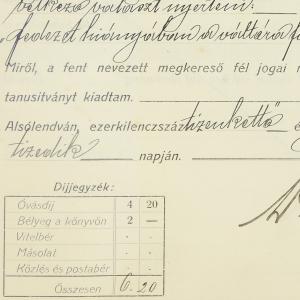 következő választ nyertem:
„fedezet hiányában a váltóra
Miről, a fent nevezett megkereső fél jogai
tanusitványt kiadtam.
Alsólendván, ezerkilenczszáztizenkettő é
tizedik napján.
Díjjegyzék:
Óvásdíj 4 20
Bélyeg a könyvön 2 —
Vitelbér . .
Másolai . .
Közlés és postabér . .
Összesen 6. 20